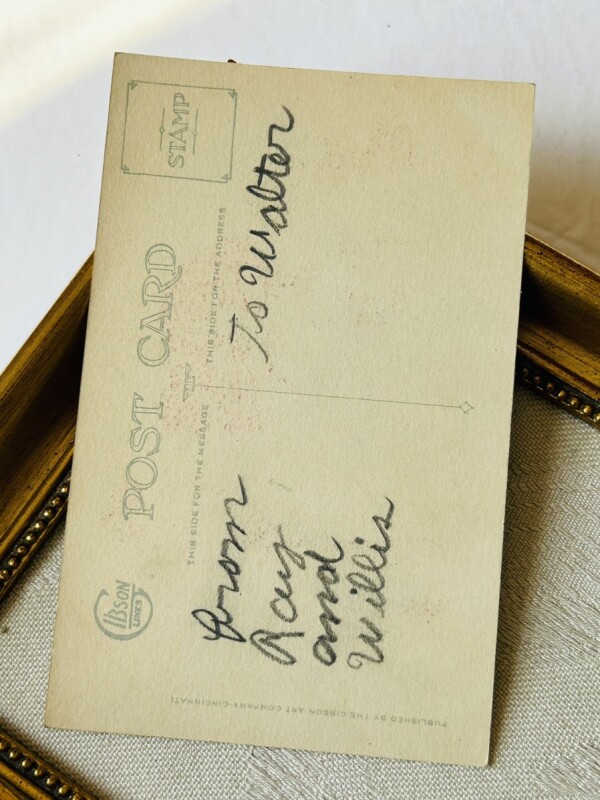 GIBSON
LINES
POST CARD
STAMP
THIS SIDE FOR THE MESSAGE
THIS SIDE FOR THE ADDRESS
From
Ray
and
Willis
To Walter
PUBLISHED BY THE GIBSON ART COMPANY-CINCINNATI